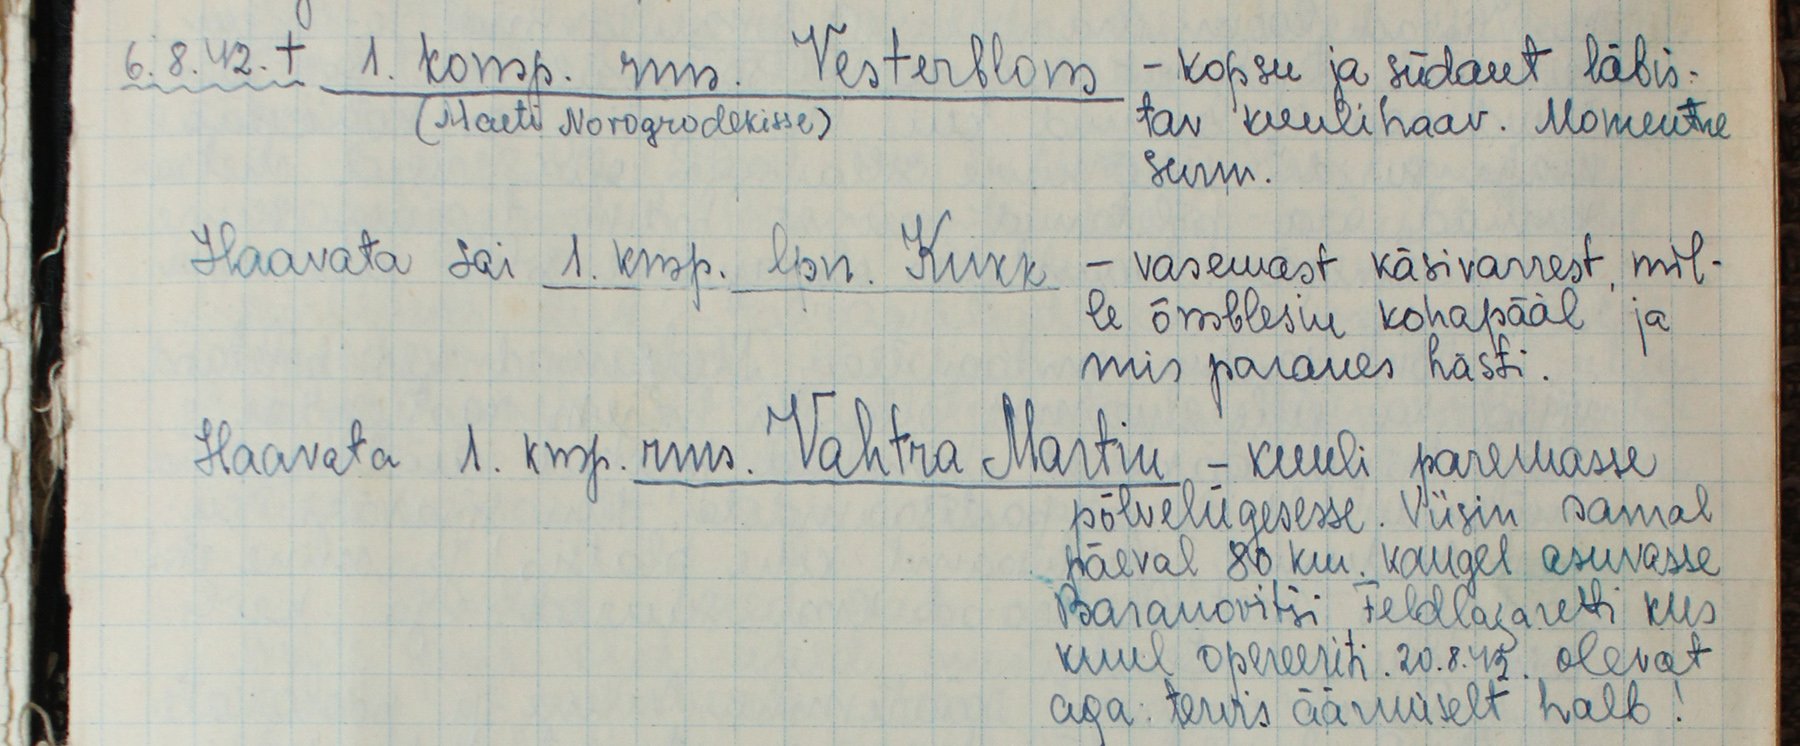 6.8.42. † 1. komp. rms. Vesterblom - kopsu ja südant läbis-
(Maeti Novogrodekisse) tav kuulihaav. Momentne
surm.
Haavata sai 1. kmp. lpn. Kukk - vasemast käsivarrest, mil-
le õmblesin kohapääl ja
mis paranes hästi.
Haavata 1. kmp. rms. Vahtra Martin - kuuli paremasse
põlveliigesesse. Viisin samal
päeval 80 km. kaugel asuvasse
Baranovitši Feldlazaretti kus
kuul opereeriti. 20.8.42. olevat
aga tervis äärmiselt halb!